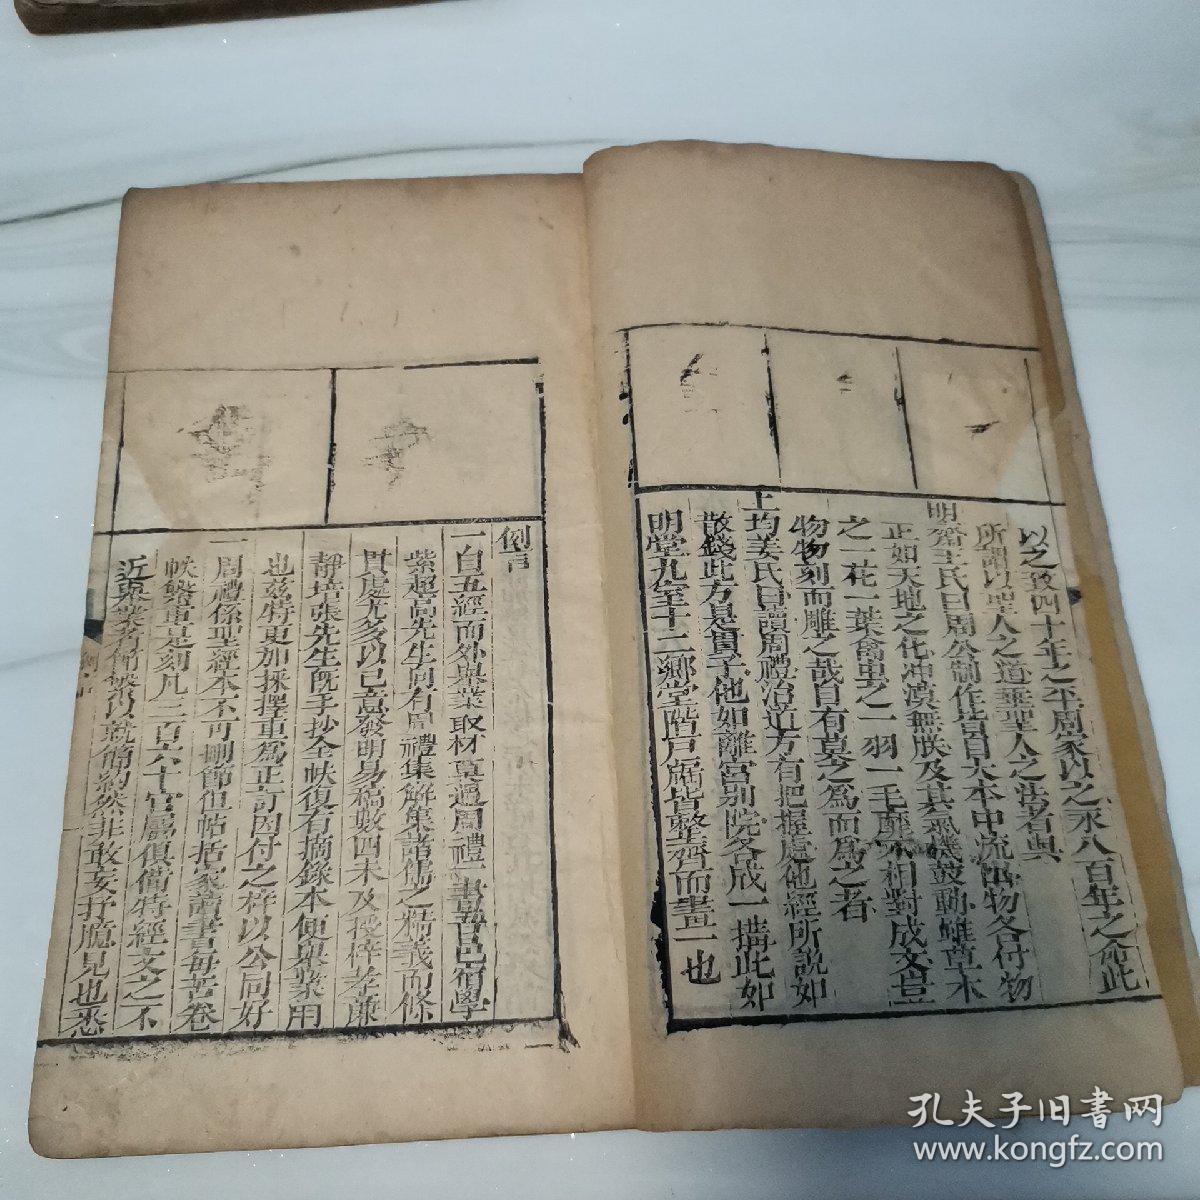 以之致四十年之平周家以之永八百年之命此
所謂以聖人之道垂聖人之法者與
明齋王氏曰周公制作皆自大本中流出物各付物
正如天地之化冲漠無朕及其氣機鼓動雖草木
之一花一葉禽虫之一羽一毛靡不相對成文豈
物物刻而雕之哉自有莫之為而為之者
上均姜氏曰讀周禮治道方有把握處他經所說如
散錢此方是貫子他如離宮别院各成一搆此如
明堂九室十二鄉堂階戸牖皆整齊而畫一也
例言
一自五經而外舉業取材莫過周禮一書吾邑宿學
紫超高先生向有周禮集解集諸儒之精義而條
貫處尤多以已意發明易稿數四未及授梓孝亷
靜培張先生旣手抄全帙復有摘錄本便舉業用
也兹特更加採擇重為正訂因付之梓以公同好
一周禮係聖經本不可刪節但帖括家讀書每苦卷
帙繁重是刻凡三百六十官屬俱備特經文之不
近舉業者稍節以就簡約然非敢妄抒臆見也悉
例言
孔夫子旧書网
www.kongfz.com